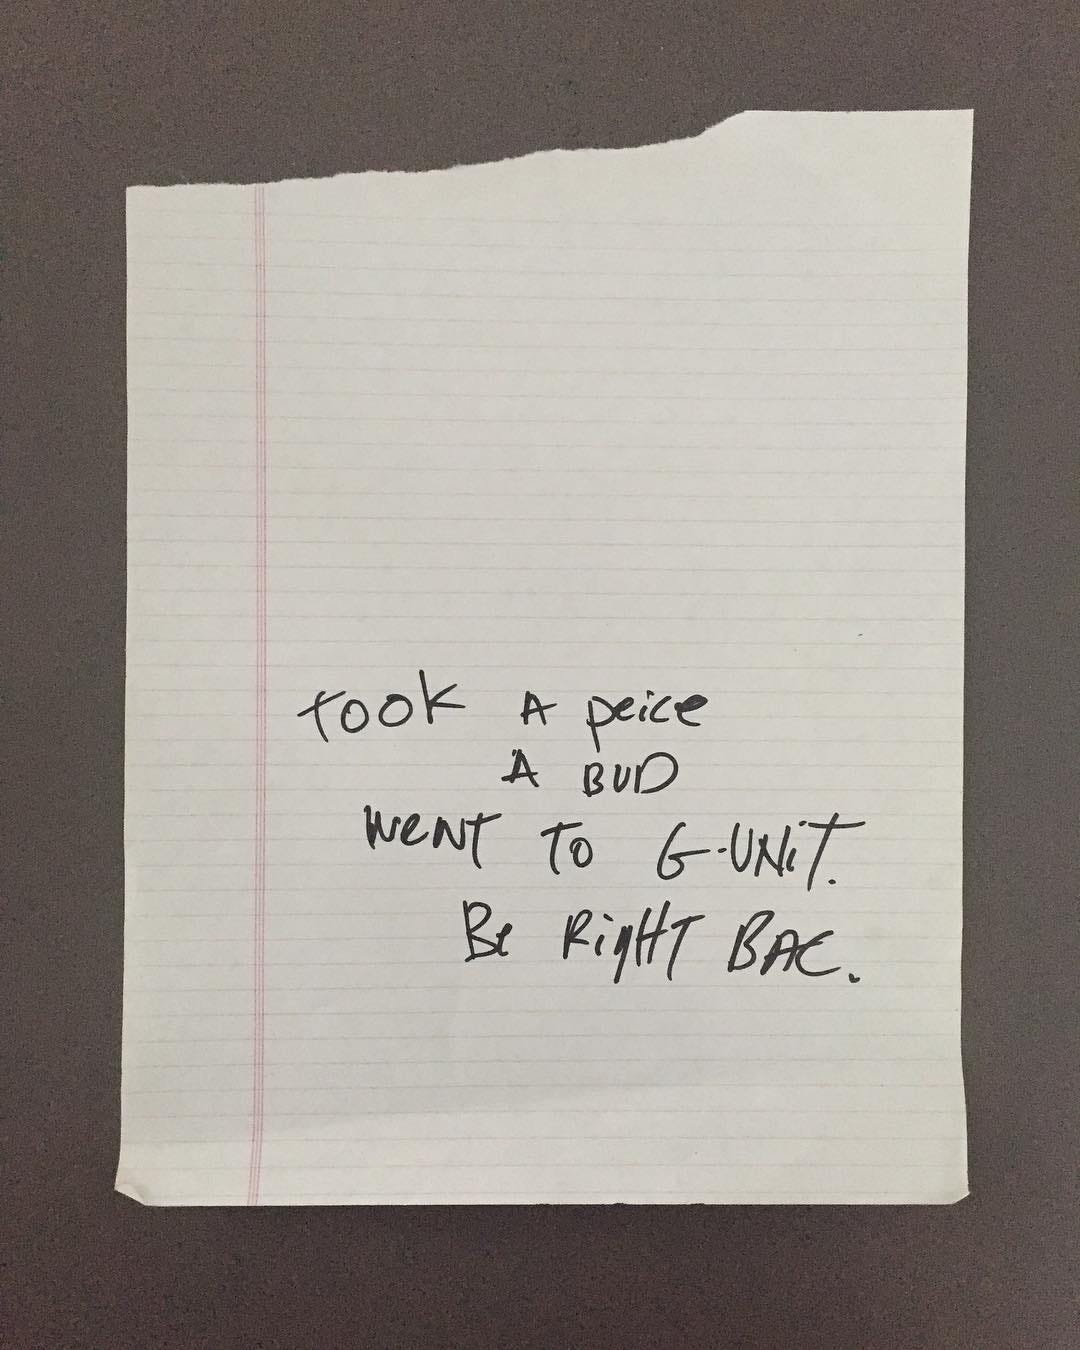 TOOK A peice
A BUD
WeNT TO G-UNiT.
Be RigHT BAC.